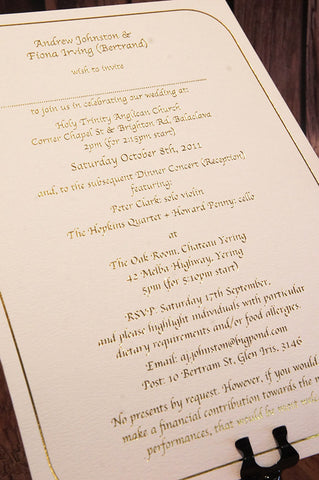 Andrew Johnston &
Fiona Irving (Bertrand)
wish to invite
to join us in celebrating our wedding at:
Holy Trinity Anglican Church
Corner Chapel St & Brighton Rd, Balaclava
2pm (for 2:15pm start)
Saturday October 8th, 2011
and, to the subsequent Dinner Concert (Reception)
featuring:
Peter Clark: solo violin
The Hopkins Quartet + Howard Penny: cello
at
The Oak Room, Chateau Yering
42 Melba Highway, Yering
5pm (for 5:10pm start)
RSVP: Saturday 17th September,
and please highlight individuals with particular
dietary requirements and/or food allergies.
Email: aj.johnston@bigpond.com
Post: 10 Bertram St, Glen Iris, 3146
No presents by request. However, if you would
make a financial contribution towards the
performances, that would be most